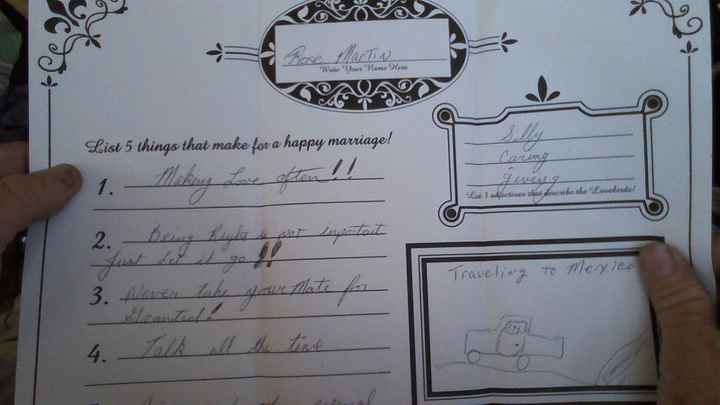 Rose Martin
Write Your Name Here
List 5 things that make for a happy marriage!
1. Making Love often!!
2. Being Right is not important
just let it go!!
3. Never take your Mate for
Granted!
4. Talk all the time
Silly
Caring
giving
List 3 adjectives that describe the Lovebirds!
Traveling to Mexico